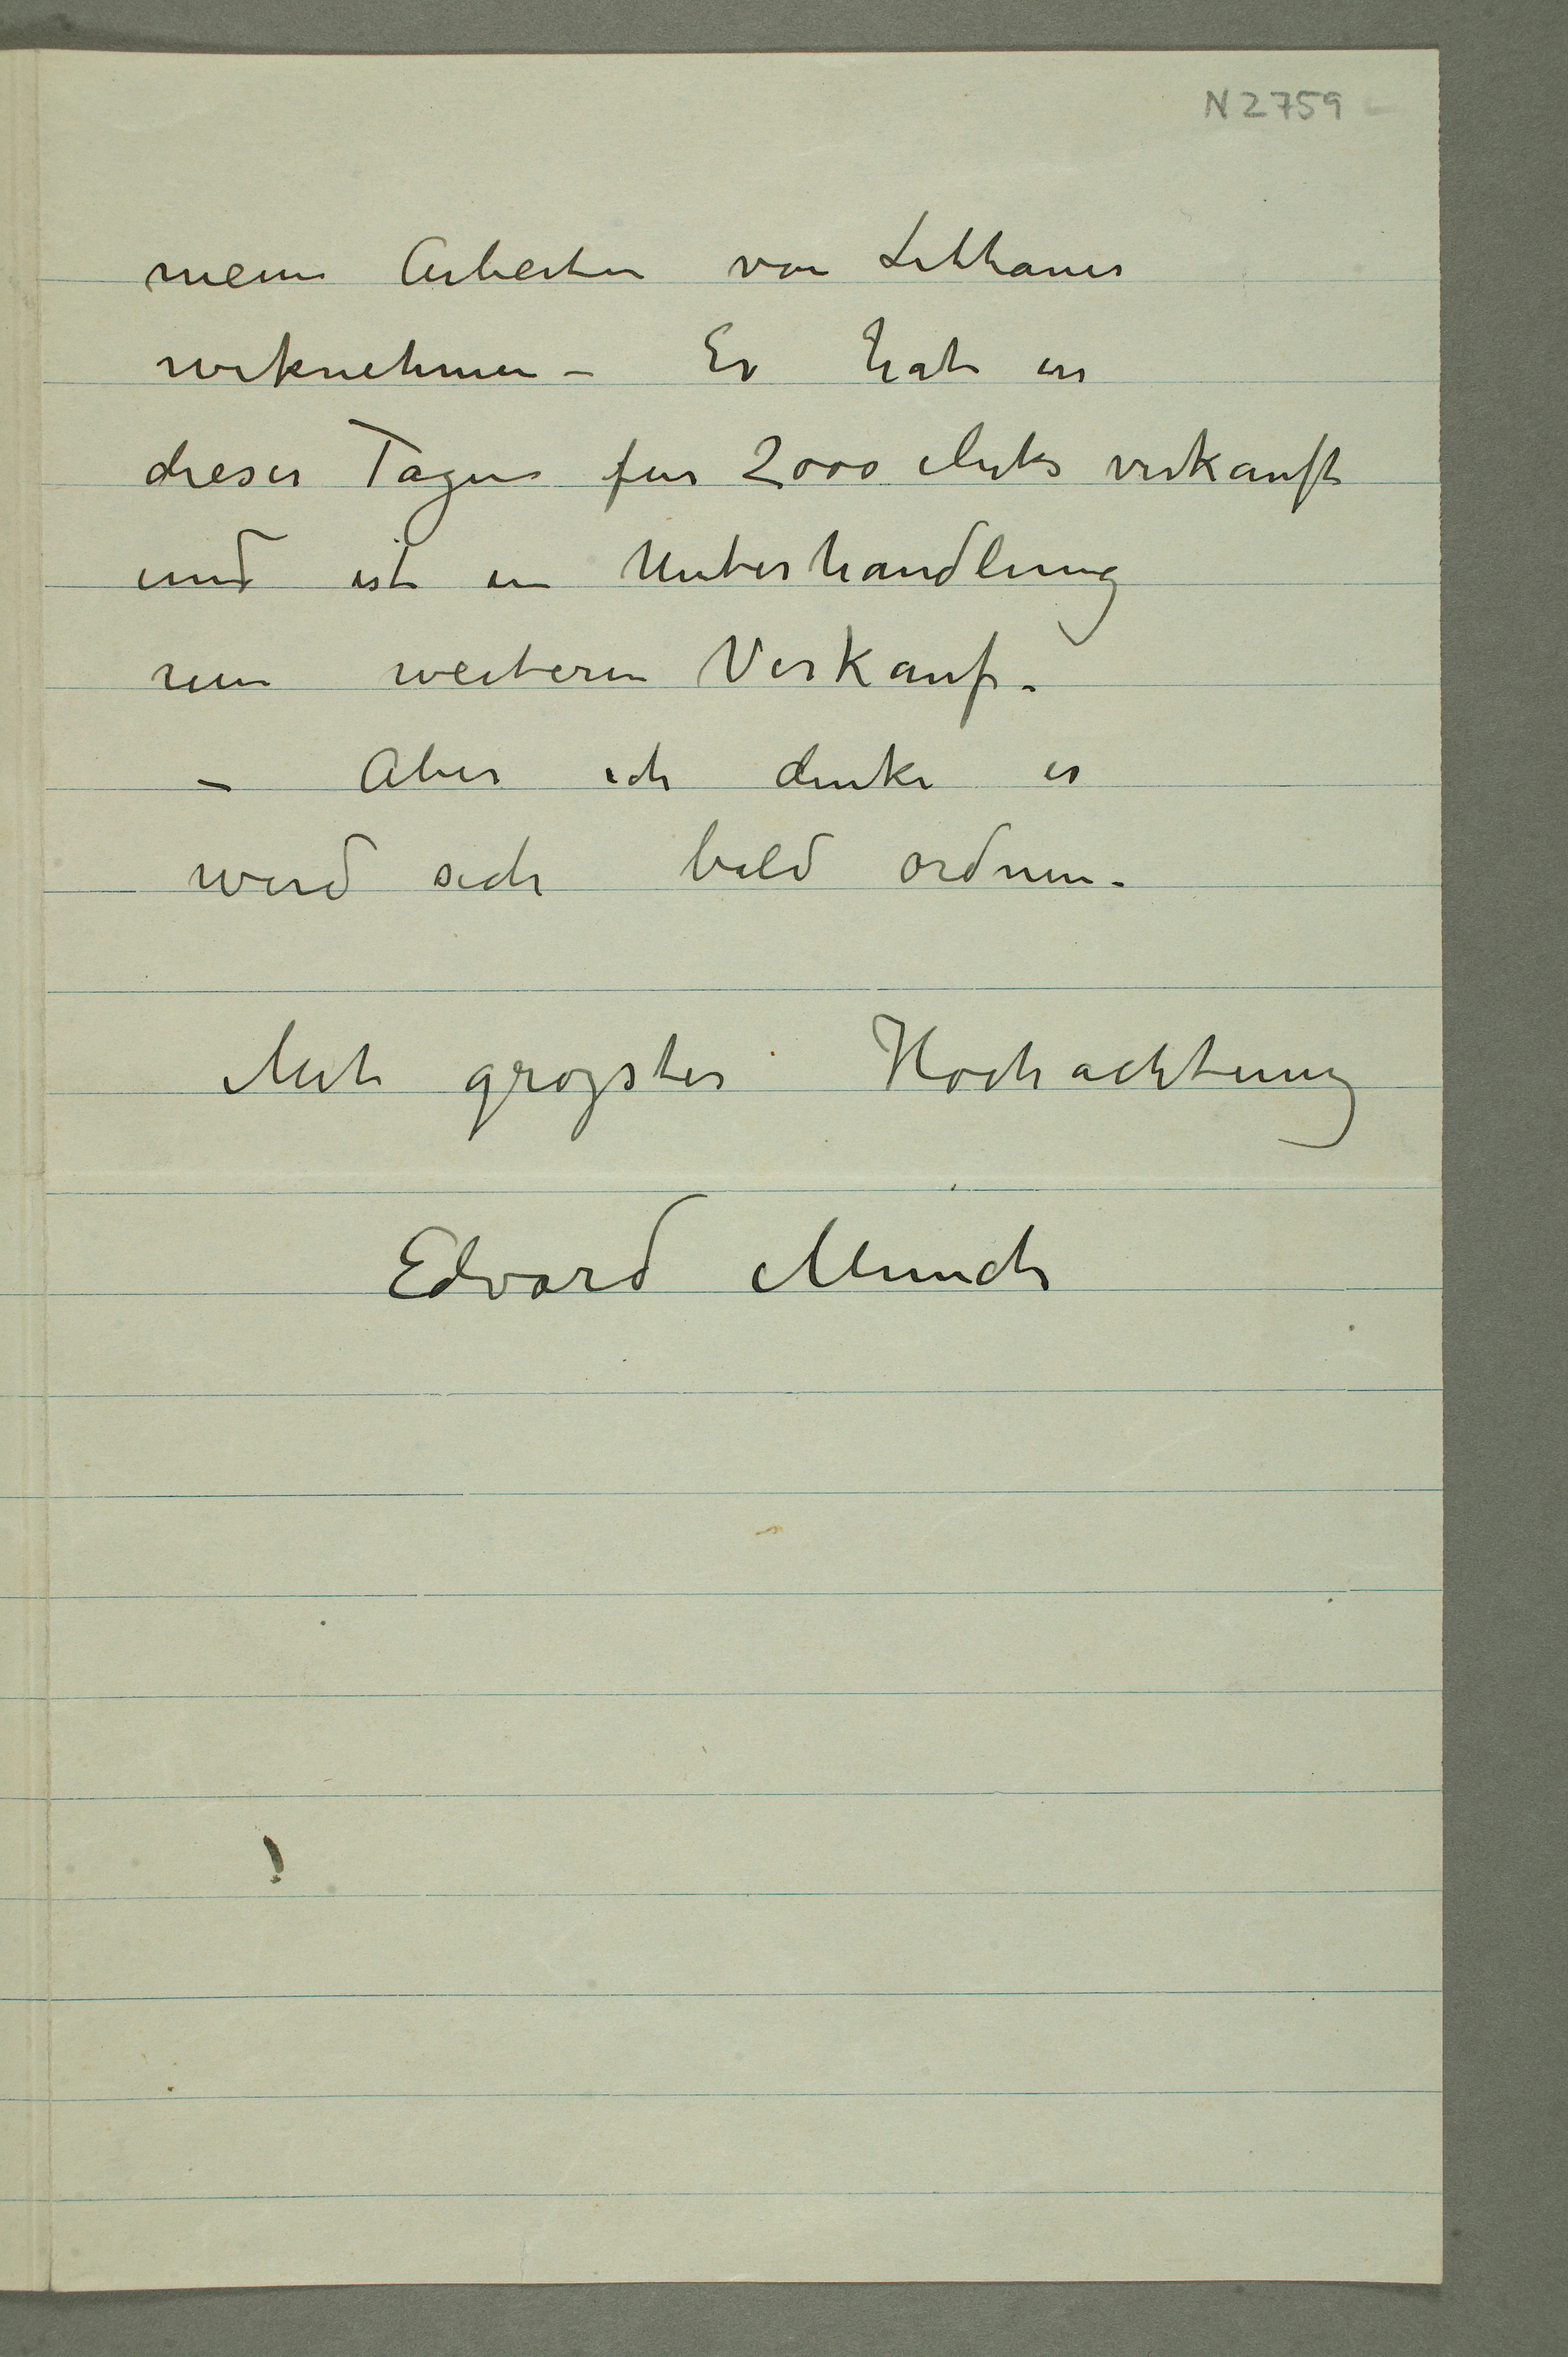 N 2759
meine Arbeiten von Litthauer
weknehmen – Er hat in
dieser Tagen fur 2000 Mks verkauft
und ist in Unterhandlung
um weiteren Verkauf.
– Aber ich denke es
wird sich bald ordnen.
Mit grozster Hochachtung
Edvard Munch